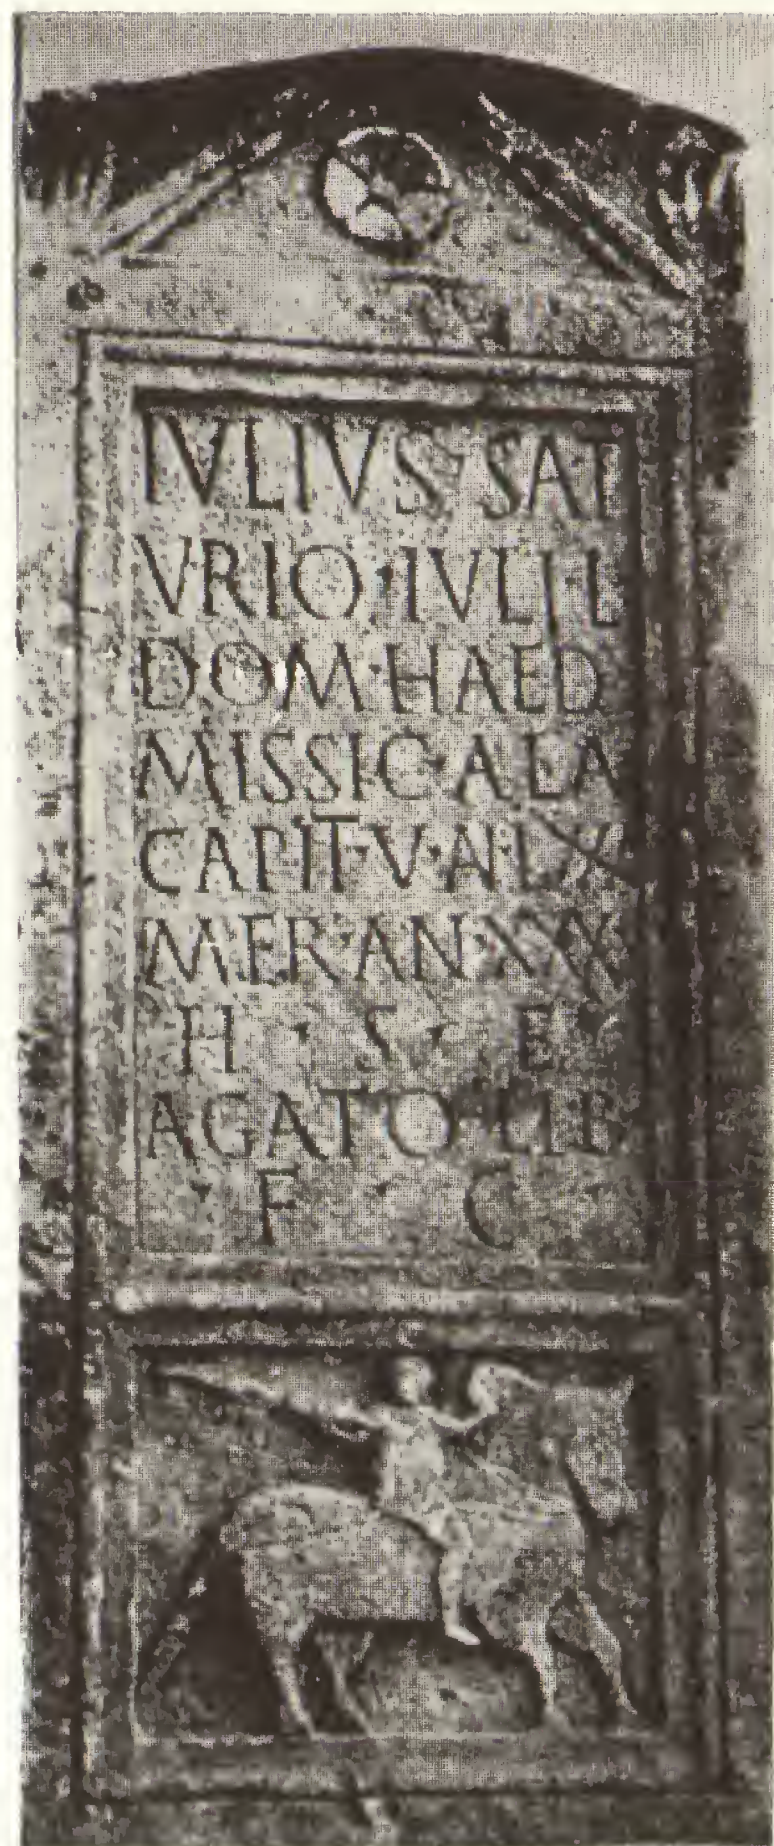 IVLIVS SAT
VRIO · IVLI · L
DOM · HAED
MISSIC · ALA
CAPIT · V · AN · LX
MER · AN · XXX
H · S · E
AGATO · LIB
· F · C